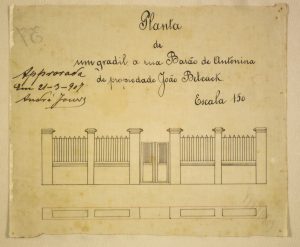 Planta
de
um gradil a rua Barão de Antonina
de propriedade João Betcack
Escala 1:50
Approvada
em 21-3-907
André